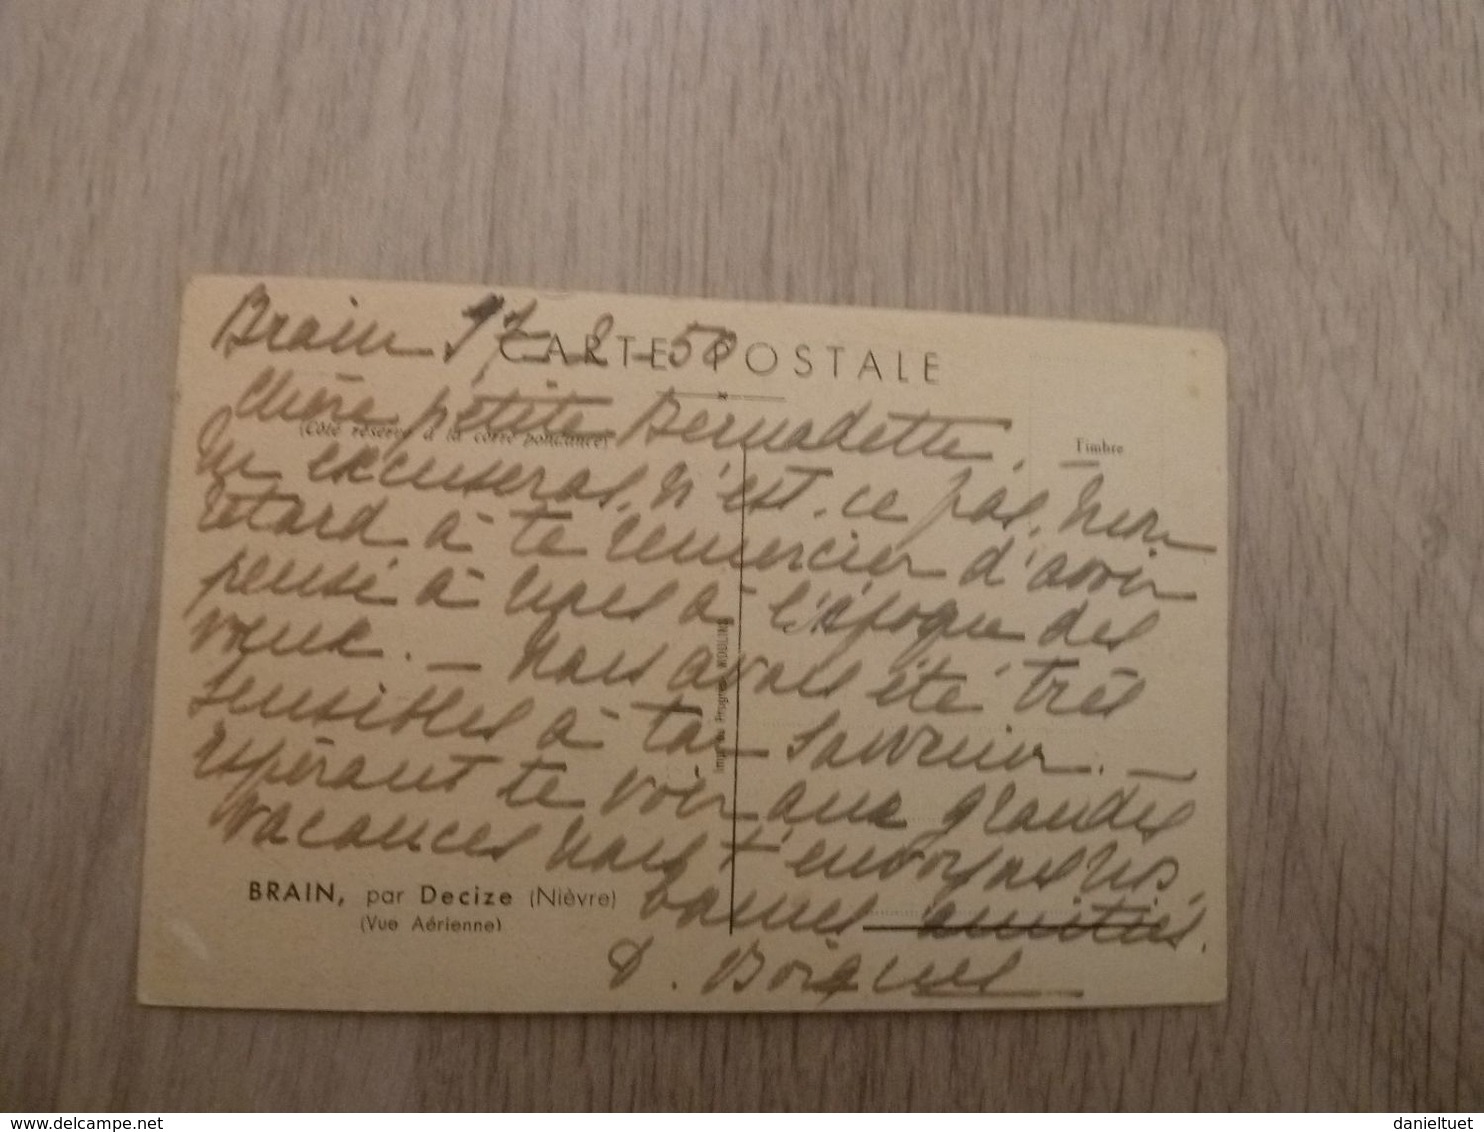 Brain 27-2-50
CARTE POSTALE
Chère petite Bernadette,
(Côté réservé à la correspondance)
Timbre
Tu excuseras, n'est-ce pas, mon
retard à te remercier d'avoir
pensé à nous à l'époque des
voeux. — Nous avons été très
sensibles à ton souvenir. —
Espérant te voir aux grandes
vacances nous t'envoyons nos
bonnes amitiés.
BRAIN, par Decize (Nièvre)
(Vue Aérienne)
delcampe.net
danieltuet